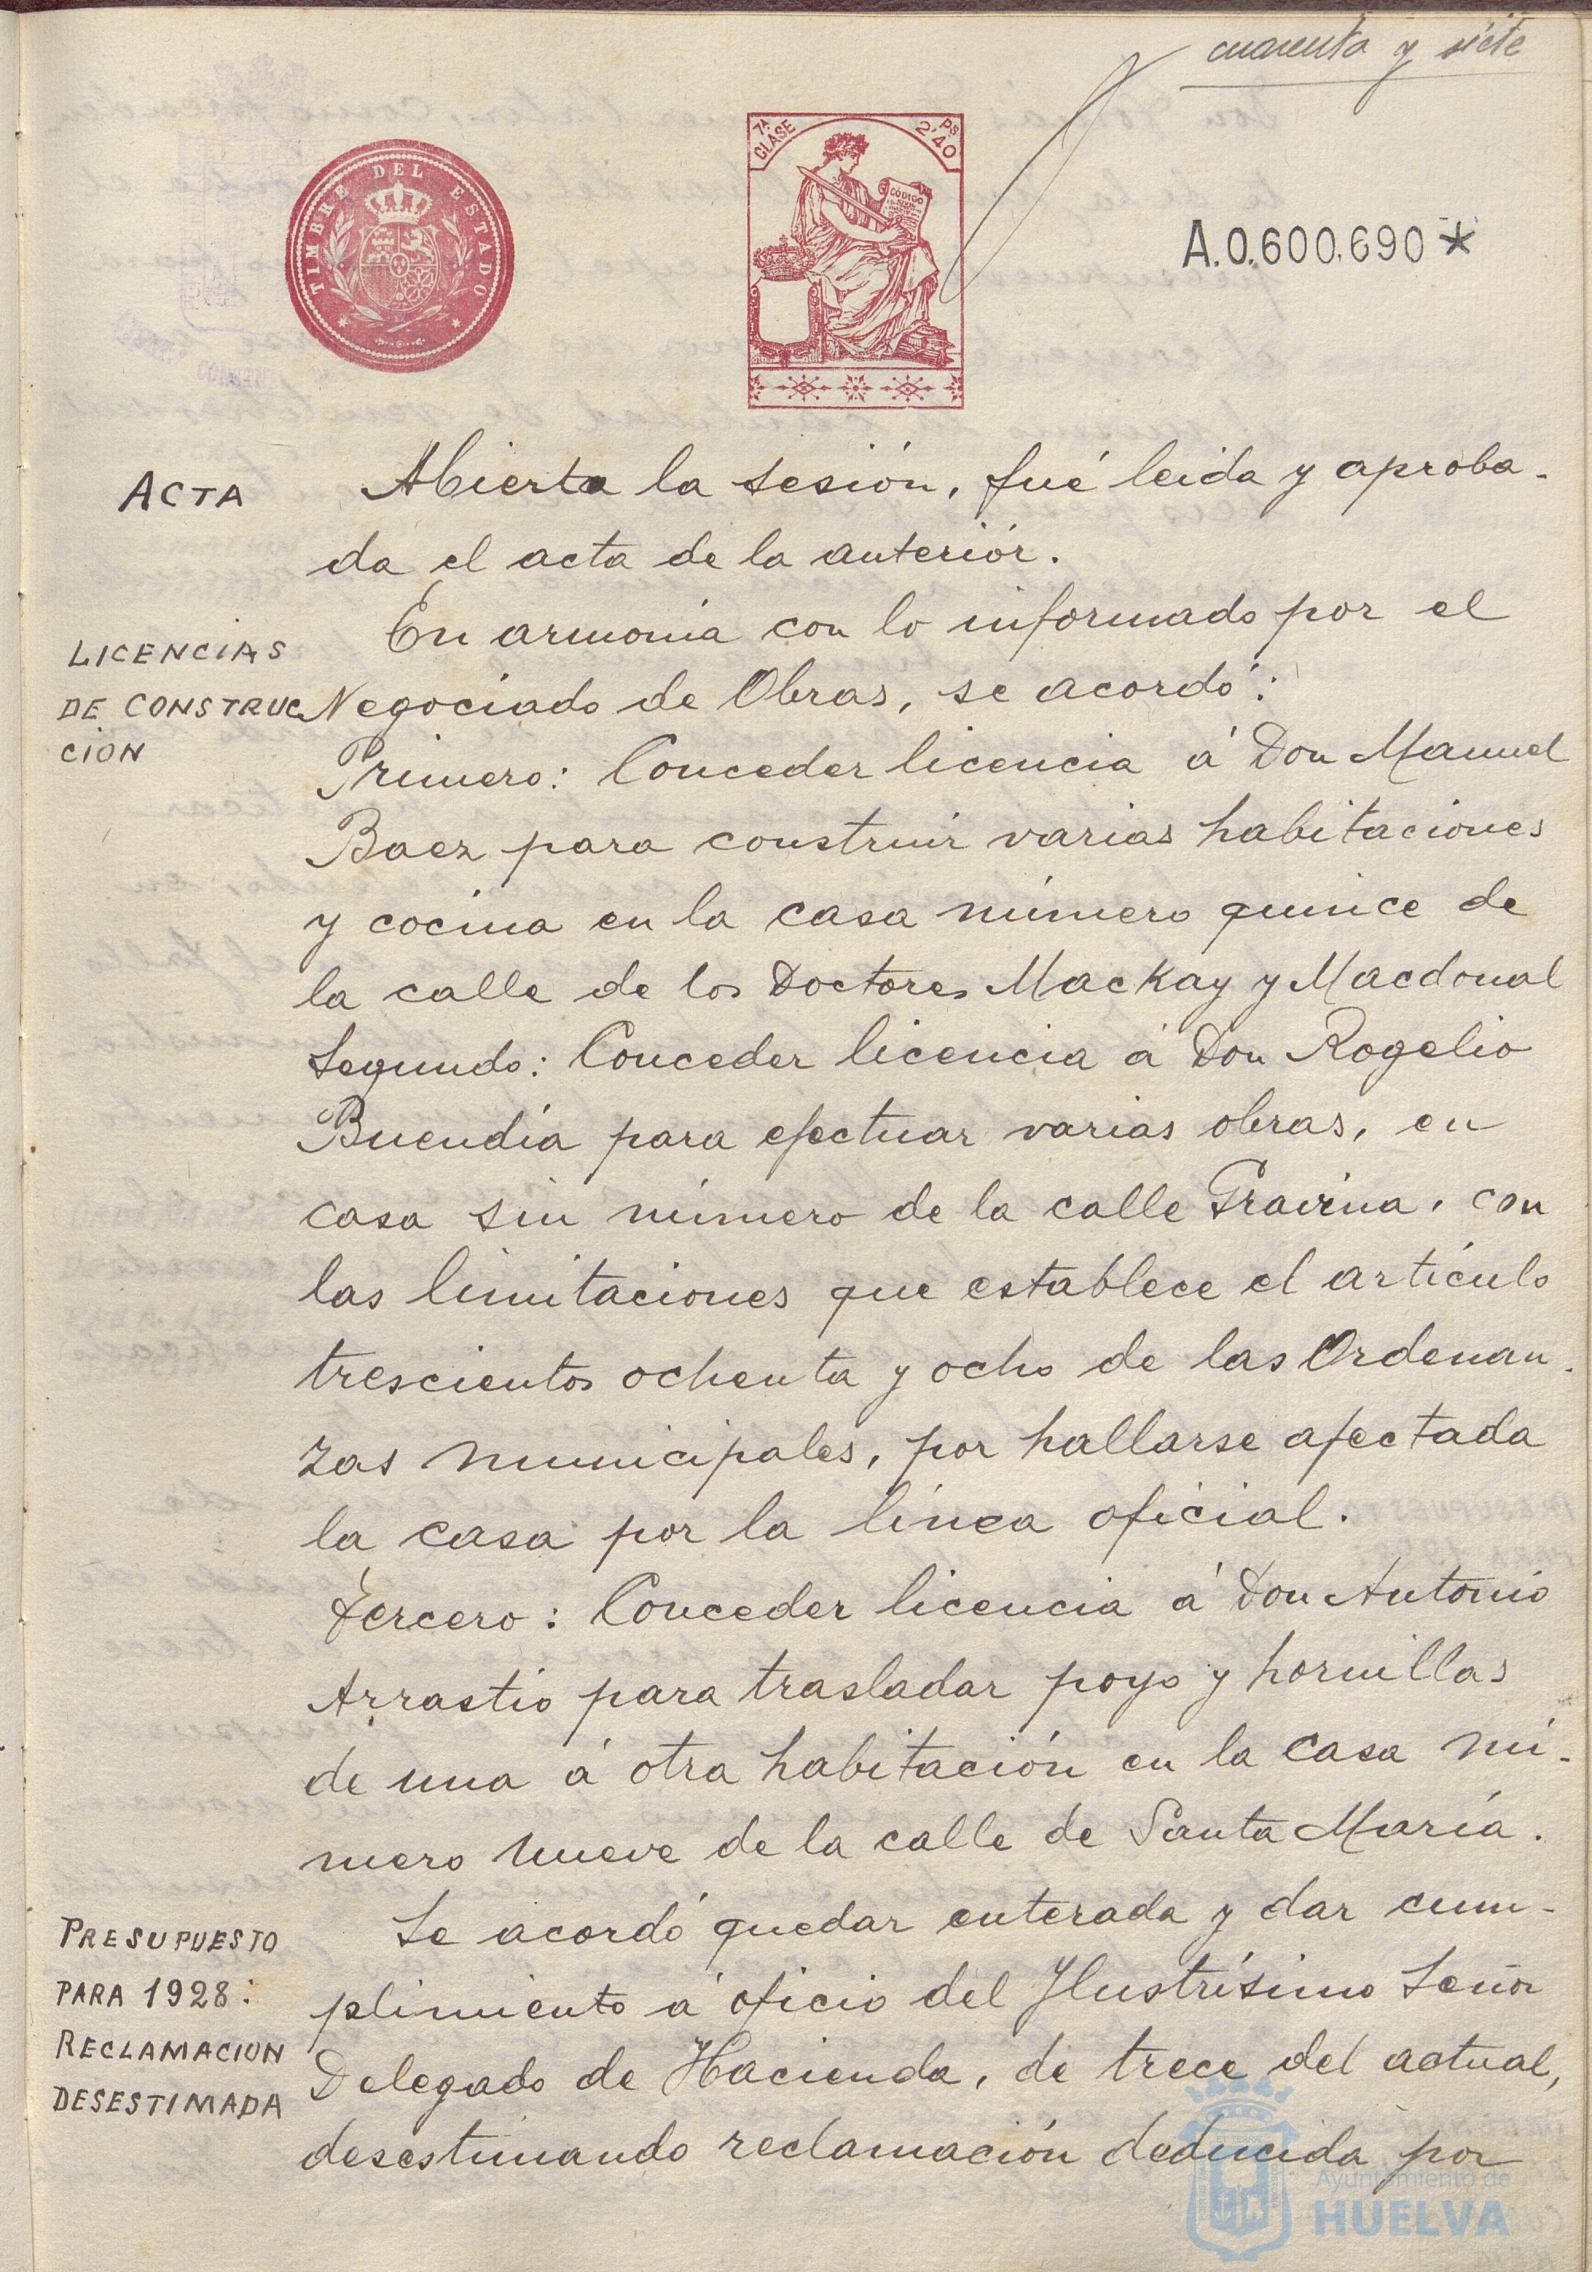 cuarenta y siete
TIMBRE DEL ESTADO
7ª CLASE
PS 2'40
CODIGO
A.0.600.690*
ACTA
Abierta la sesión, fué leida y aproba-
da el acta de la anteriór.
LICENCIAS
DE CONSTRUC
CION
En armonía con lo informado por el
Negociado de Obras, se acordó:
Primero: Conceder licencia á Don Manuel
Baez para construir varias habitaciones
y cocina en la casa número quince de
la calle de los Doctores Mackay y Macdonal
Segundo: Conceder licencia á Don Rogelio
Buendía para efectuar varias obras, en
casa sin número de la calle Gravina, con
las limitaciones que establece el artículo
trescientos ochenta y ocho de las Ordenan-
zas municipales, por hallarse afectada
la casa por la línea oficial.
Tercero: Conceder licencia á Don Antonio
Arrastio para trasladar poyo y hornillas
de una á otra habitación en la casa nú-
mero nueve de la calle de Santa María.
PRESUPUESTO
PARA 1928:
RECLAMACION
DESESTIMADA
Se acordó quedar enterada y dar cum-
plimiento á oficio del Ilustrísimo Señor
Delegado de Hacienda, de trece del actual,
desestimando reclamación deducida por
Ayuntamiento de
HUELVA